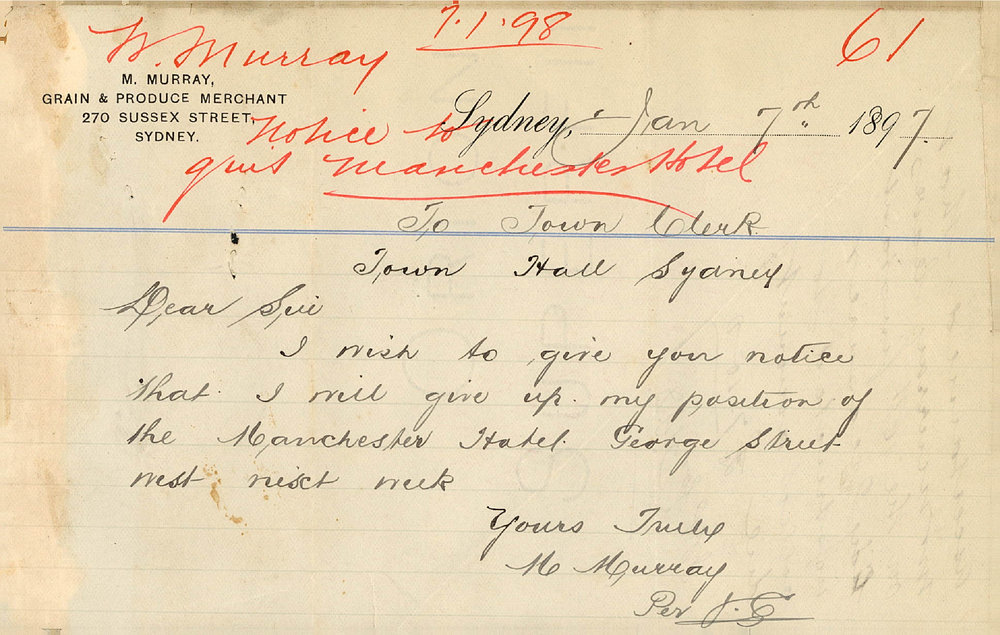 7.1.98
61
W. Murray
M. MURRAY,
GRAIN & PRODUCE MERCHANT
270 SUSSEX STREET,
SYDNEY.
Sydney, Jan 7th 1897.
Notice to
quit Manchester Hotel
To Town Clerk
Town Hall Sydney
Dear Sir
I wish to give you notice
that I will give up my position of
the Manchester Hotel George Street
west next week
Yours Truly
M Murray
Per J. C